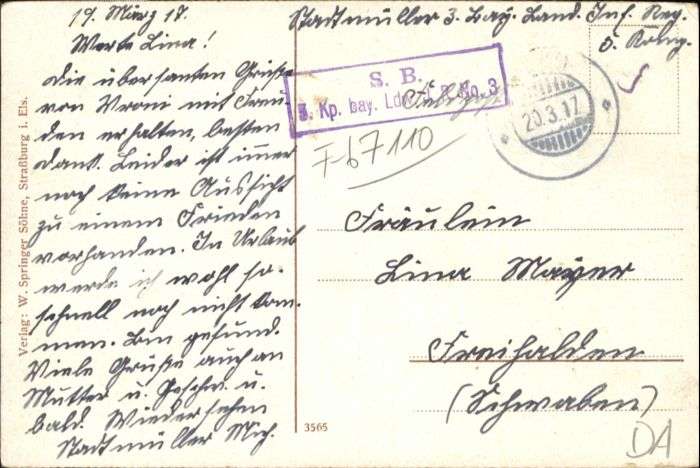 19. März 17.
Werte Lina!
Die übersanten Grüße
von Vroni mit Freu-
den erhalten, besten
Dank. Leider ist immer
noch keine Aussicht
zu einem Frieden
vorhanden. In Urlaub
werde ich wohl so-
schnell noch nicht kom-
men. Bin gesund.
Viele Grüße auch an
Mutter u. Geschw. u.
bald. Wiedersehen
Stadtmüller Mich.
Verlag: W. Springer Söhne, Straßburg i. Els.
Stadtmüller 3. Bay. Land. Inf. Reg.
5. Komp.
S. B.
Kp. bay. No. 3
20.3.17
F-b7110
Fräulein
Lina Mayer
Freihalden
(Schwaben)
3565
DA